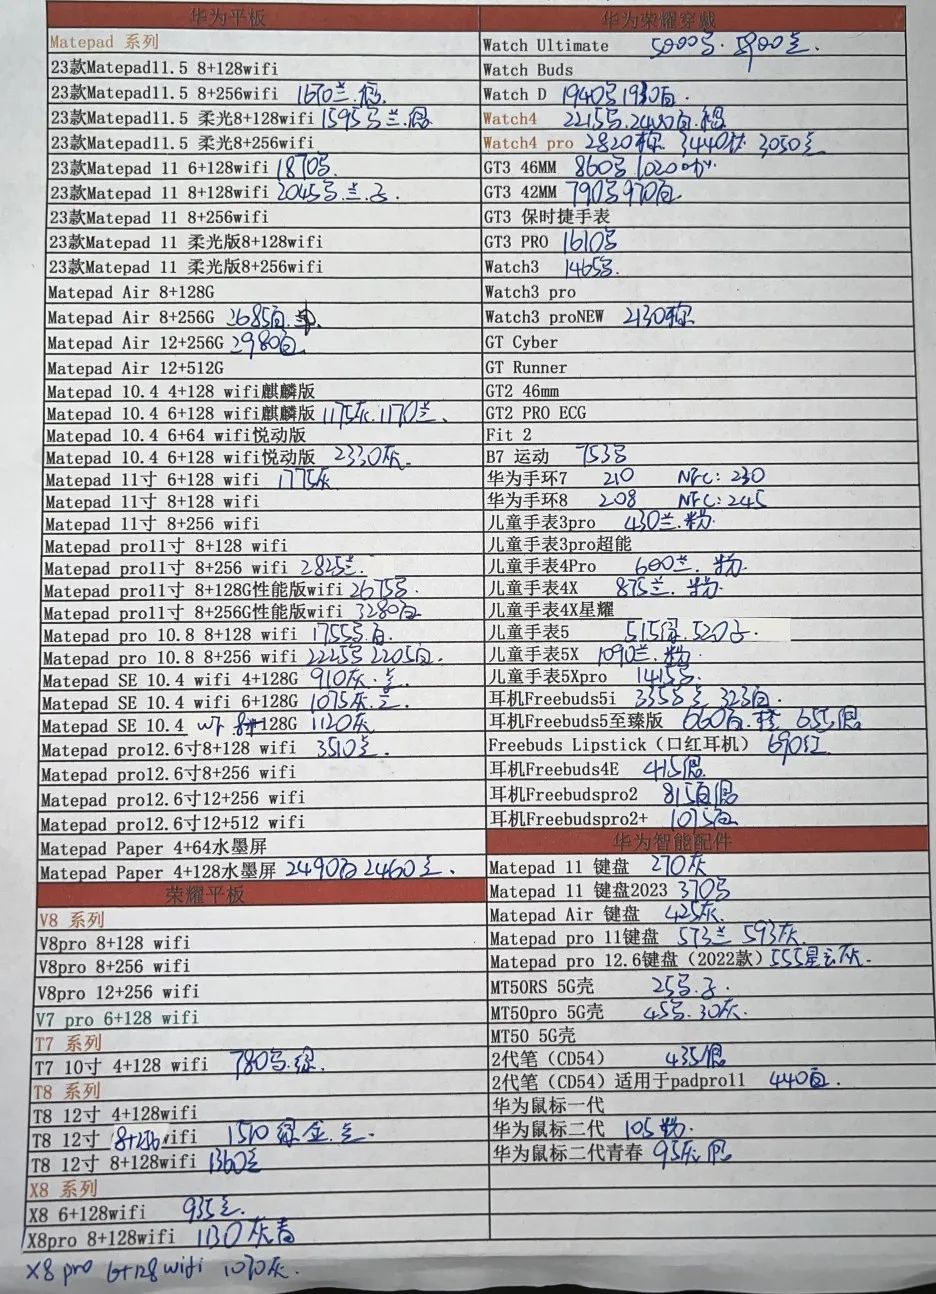 华为平板
Matepad 系列
23款Matepad11.5 8+128wifi
23款Matepad11.5 8+256wifi 1670兰.
23款Matepad11.5 柔光8+128wifi 1595 兰.
23款Matepad11.5 柔光8+256wifi
23款Matepad 11 6+128wifi 1870
23款Matepad 11 8+128wifi 2045 兰.
23款Matepad 11 8+256wifi
23款Matepad 11 柔光版8+128wifi
23款Matepad 11 柔光版8+256wifi
Matepad Air 8+128G
Matepad Air 8+256G 2685白.
Matepad Air 12+256G 2980白.
Matepad Air 12+512G
Matepad 10.4 4+128 wifi麒麟版
Matepad 10.4 6+128 wifi麒麟版 1175灰.1170兰、
Matepad 10.4 6+64 wifi悦动版
Matepad 10.4 6+128 wifi悦动版 2330灰.
Matepad 11寸 6+128 wifi 1775灰
Matepad 11寸 8+128 wifi
Matepad 11寸 8+256 wifi
Matepad pro11寸 8+128 wifi
Matepad pro11寸 8+256 wifi 2825兰.
Matepad pro11寸 8+128G性能版wifi 2675
Matepad pro11寸 8+256G性能版wifi 3280白
Matepad pro 10.8 8+128 wifi 1755 白.
Matepad pro 10.8 8+256 wifi 2225 2205白.
Matepad SE 10.4 wifi 4+128G 910灰.兰
Matepad SE 10.4 wifi 6+128G 1075灰.兰
Matepad SE 10.4 wif 8+128G 1120灰
Matepad pro12.6寸8+128 wifi 3510
Matepad pro12.6寸8+256 wifi
Matepad pro12.6寸12+256 wifi
Matepad pro12.6寸12+512 wifi
Matepad Paper 4+64水墨屏
Matepad Paper 4+128水墨屏 2490白 2460
荣耀平板
V8 系列
V8pro 8+128 wifi
V8pro 8+256 wifi
V8pro 12+256 wifi
V7 pro 6+128 wifi
T7 系列
T7 10寸 4+128 wifi 780 绿.
T8 系列
T8 12寸 4+128wifi
T8 12寸 8+256 wifi 1510 绿 金.
T8 12寸 8+128wifi 1360
X8 系列
X8 6+128wifi 935
X8pro 8+128wifi 1130灰青
X8 pro 6+128 wifi 1070灰.
华为荣耀穿戴
Watch Ultimate 5000 5900
Watch Buds
Watch D 1940 1930白.
Watch4 2215 2480白.棕
Watch4 pro 2820棕 3440钛 3050
GT3 46MM 860 1020
GT3 42MM 790 970白.
GT3 保时捷手表
GT3 PRO 1610
Watch3 1465
Watch3 pro
Watch3 proNEW 2130棕
GT Cyber
GT Runner
GT2 46mm
GT2 PRO ECG
Fit 2
B7 运动 753
华为手环7 210 NFC: 230
华为手环8 208 NFC: 245
儿童手表3pro 430兰.粉
儿童手表3pro超能
儿童手表4Pro 600兰.粉.
儿童手表4X 875兰.粉.
儿童手表4X星耀
儿童手表5 515 520
儿童手表5X 1090兰.粉
儿童手表5Xpro 1415
耳机Freebuds5i 335 323白.
耳机Freebuds5至臻版 660白. 655银
Freebuds Lipstick（口红耳机） 690红
耳机Freebuds4E 415银.
耳机Freebudspro2 815白银
耳机Freebudspro2+ 1075白
华为智能配件
Matepad 11 键盘 270灰
Matepad 11 键盘2023 370
Matepad Air 键盘 425灰.
Matepad pro 11键盘 573兰 593灰.
Matepad pro 12.6键盘（2022款） 555星云灰.
MT50RS 5G壳 25
MT50pro 5G壳 45 .30灰.
MT50 5G壳
2代笔（CD54） 435银
2代笔（CD54）适用于padpro11 440白.
华为鼠标一代
华为鼠标二代 105粉.
华为鼠标二代青春 95灰